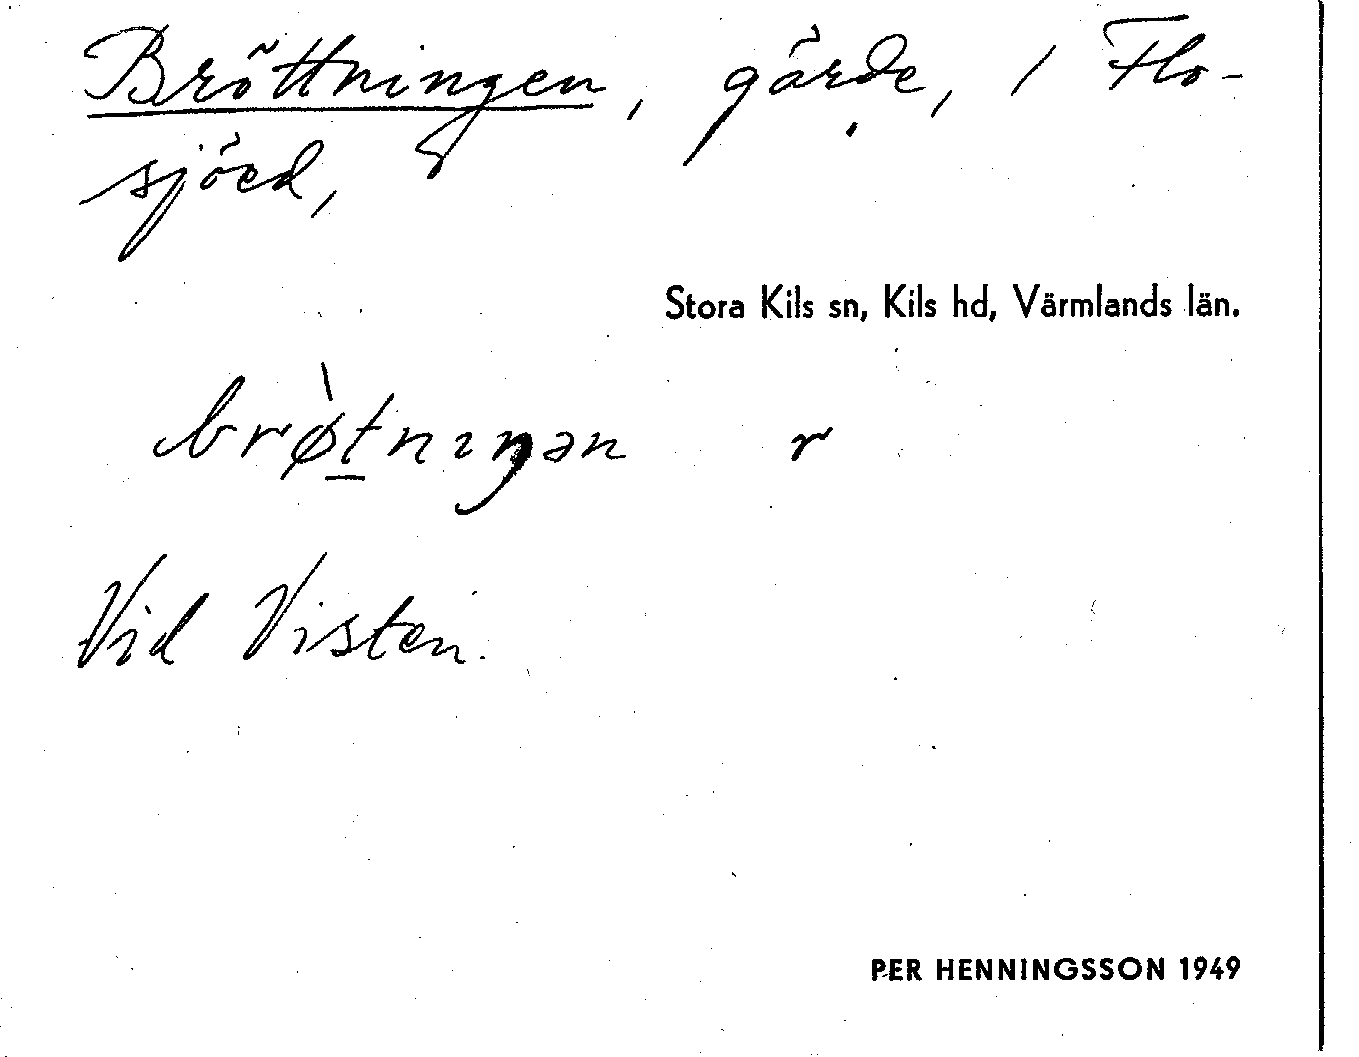 Bröttningen, gärde, i Flo-
sjöed,
Stora Kils sn, Kils hd, Värmlands län.
brø̀t̲nıŋən r
Vid Visten.
PER HENNINGSSON 1949